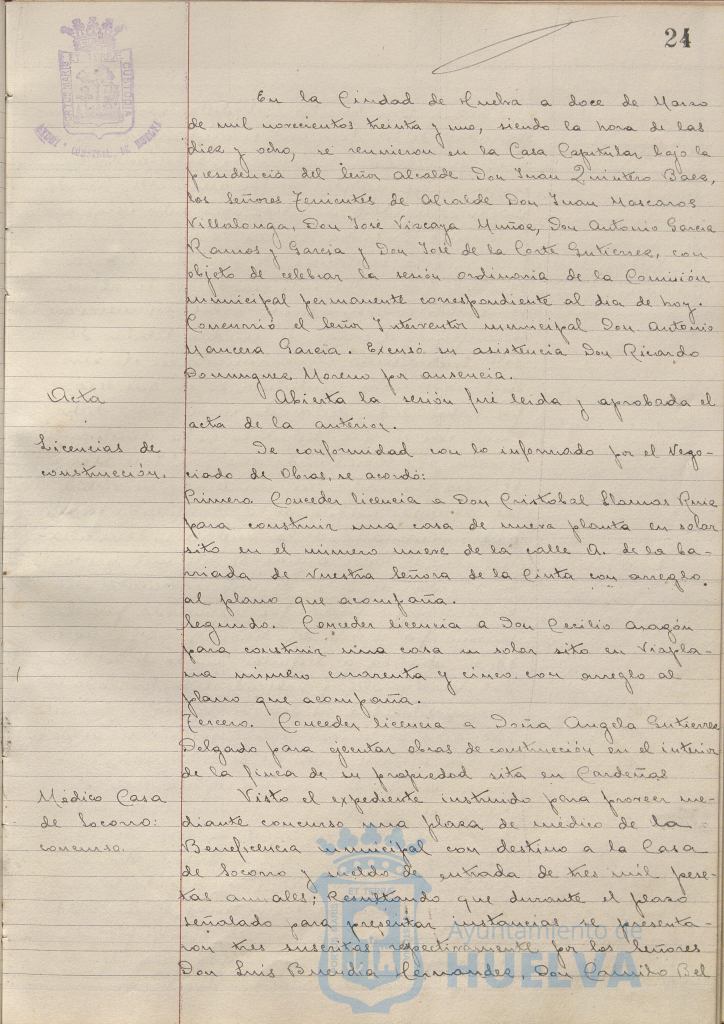 24
En la Ciudad de Huelva a doce de Marzo
de mil novecientos treinta y uno, siendo la hora de las
diez y ocho, se reunieron en la Casa Capitular bajo la
presidencia del Señor Alcalde Don Juan Quintero Baez,
los Señores Tenientes de Alcalde Don Juan Mascaros
Villalonga, Don José Vizcaya Muñoz, Don Antonio Garcia
Ramos y Garcia y Don José de la Corte Gutierrez, con
objeto de celebrar la sesión ordinaria de la Comisión
municipal permanente correspondiente al dia de hoy.
Concurrió el Señor Interventor municipal Don Antonio
Mancera Garcia. Excusó su asistencia Don Ricardo
Dominguez Moreno por ausencia.
Acta
Abierta la sesión fué leida y aprobada el
acta de la anterior.
Licencias de
construcción.
De conformidad con lo informado por el Nego-
ciado de Obras, se acordó:
Primero. Conceder licencia a Don Cristobal Llamas Ruiz
para construir una casa de nueva planta en solar
sito en el número nueve de la calle A. de la ba-
rriada de Nuestra Señora de la Cinta con arreglo
al plano que acompaña.
Segundo. Conceder licencia a Don Cecilio Aragón
para construir una casa en solar sito en Viapla-
na número cuarenta y cinco con arreglo al
plano que acompaña.
Tercero. Conceder licencia a Doña Angela Gutierrez
Delgado para ejecutar obras de construcción en el interior
de la finca de su propiedad sita en Cardeñas
Médico Casa
de Socorro:
concurso.
Visto el expediente instruido para proveer me-
diante concurso una plaza de médico de la
Beneficencia municipal con destino a la Casa
de Socorro y sueldo de entrada de tres mil pese-
tas anuales; Resultando que durante el plazo
señalado para presentar instancias se presenta-
ron tres suscritas respectivamente por los Señores
Don Luis Buendía Hernandez, Don Camilo Bel
Ayuntamiento de
HUELVA